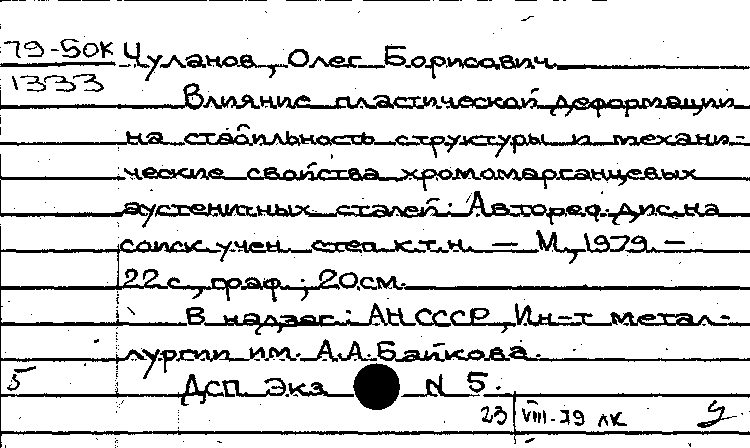 79-50К Чуланов, Олег Борисович
1333
Влияние пластической деформации
на стабильность структуры и механи-
ческие свойства хромомарганцевых
аустенитных сталей: Автореф. дис. на
соиск. учен. степ. к.т.н. — М., 1979. —
22 с., граф.; 20 см.
В надзаг.: АН СССР, Ин-т метал-
лургии им. А.А. Байкова.
5 ДСП. Экз N 5.
23 VIII-79 ЛК